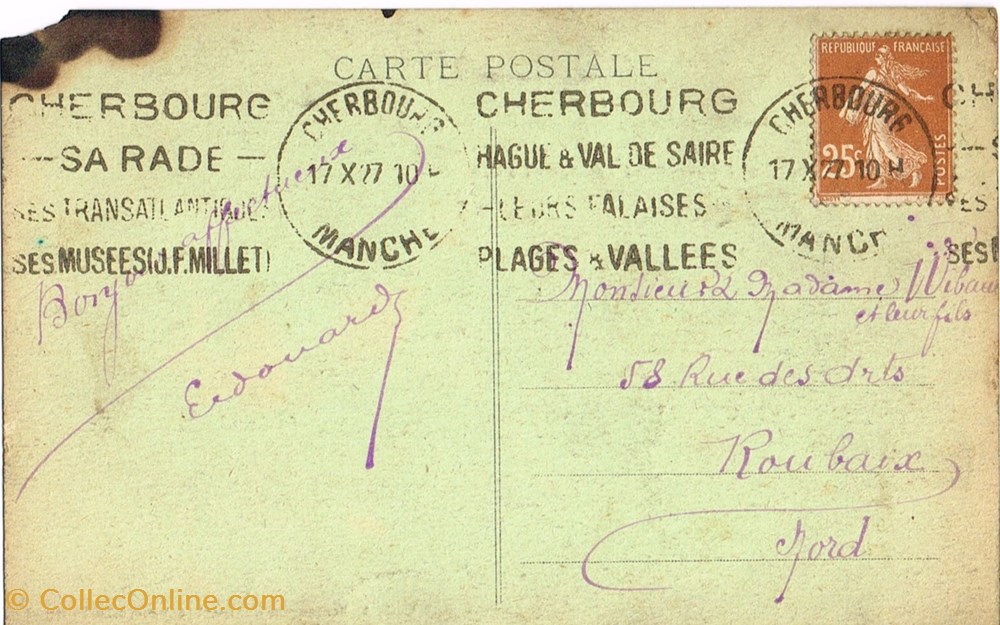 CARTE POSTALE
REPUBLIQUE FRANÇAISE
25c
POSTES
CHERBOURG
— SA RADE —
SES TRANSATLANTIQUES
SES MUSEES (J.F. MILLET)
CHERBOURG
17 X 27 10 H
MANCHE
CHERBOURG
HAGUE & VAL DE SAIRE
— LEURS FALAISES
PLAGES & VALLEES
CHERBOURG
17 X 27 10 H
MANCHE
CH
SES
SES
Bonjour affectueux
Edouard
Monsieur & Madame
et leur fils
58 Rue des Arts
Roubaix
Nord
© CollecOnline.com